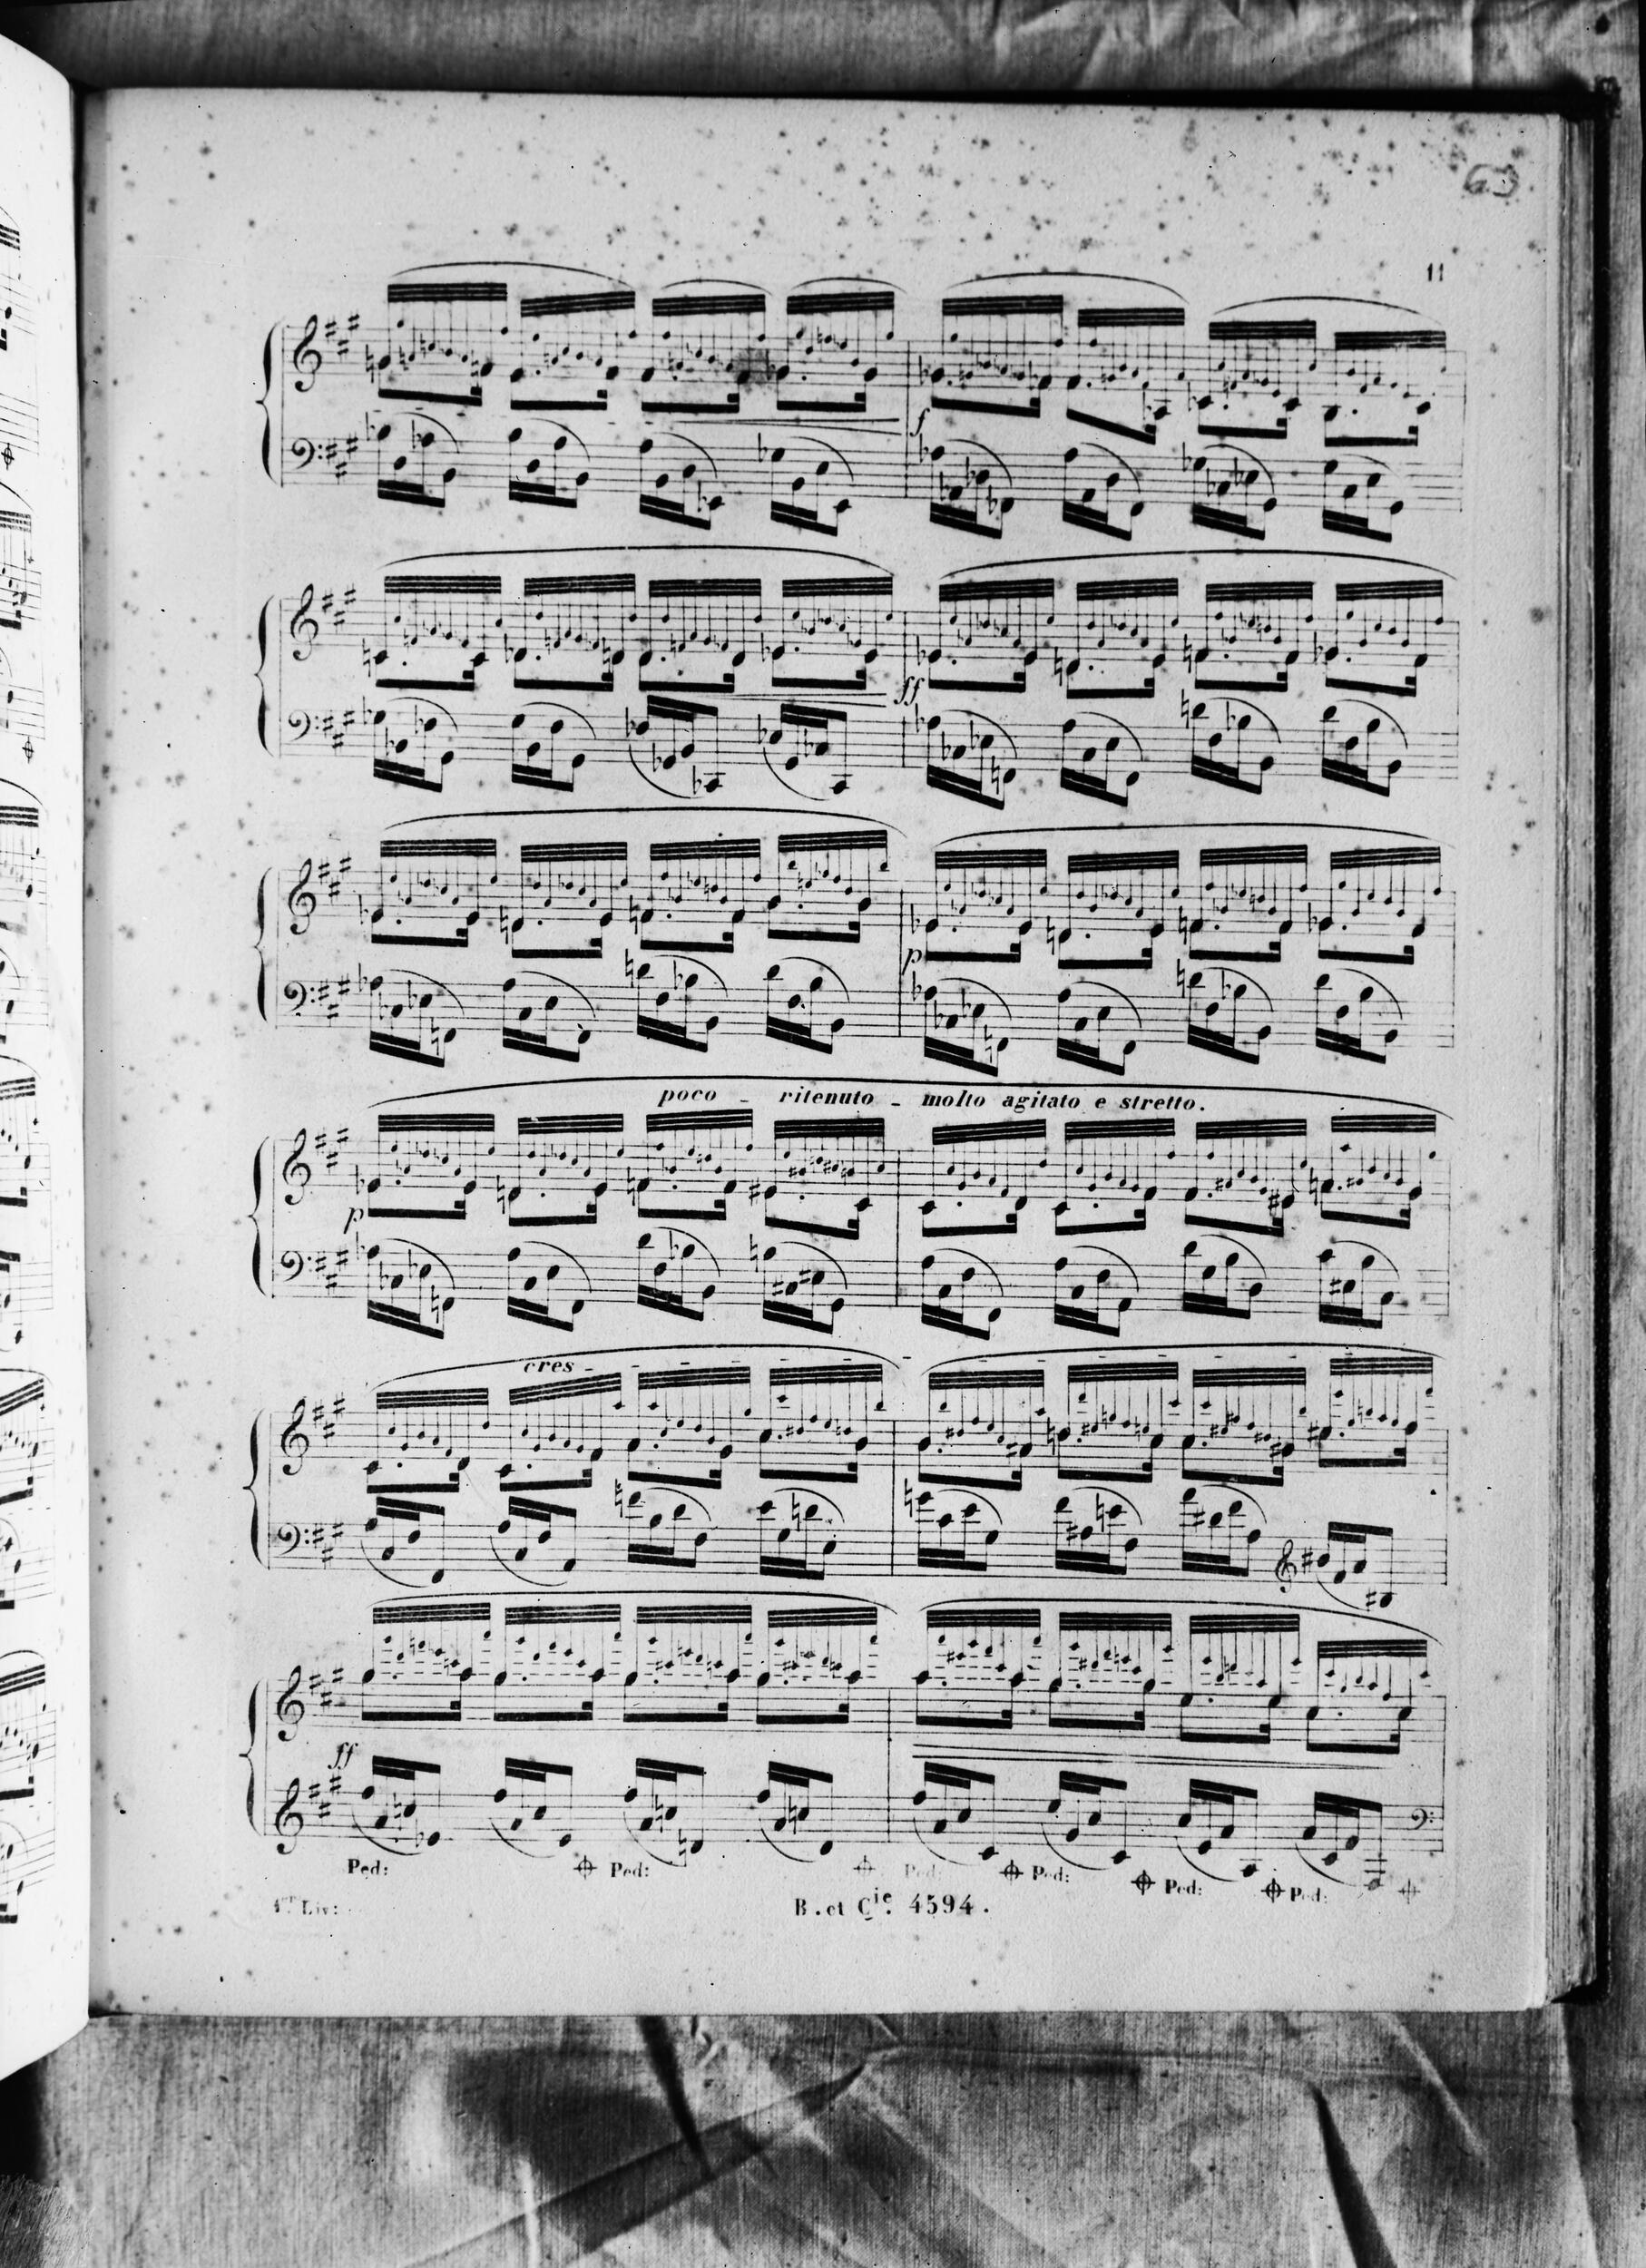 63
11
f
ff
p
poco - ritenuto - molto agitato e stretto.
p
cres -
ff
Ped: Ped: Ped: Ped: Ped: Ped:
1er Liv:
B. et Cie. 4594.